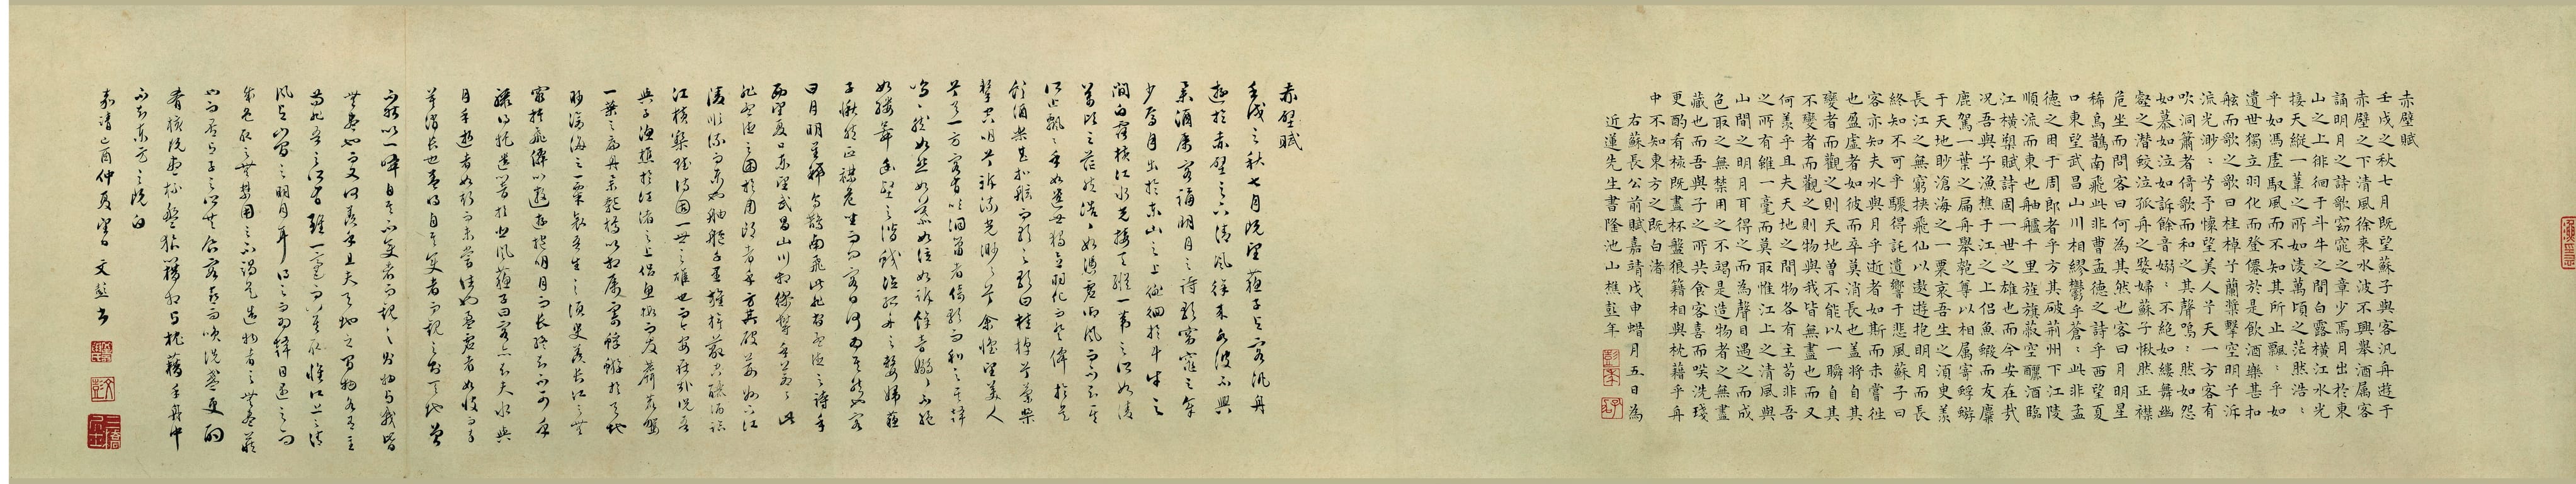 赤壁賦
壬戌之秋七月既望蘇子與客汎舟遊于
赤壁之下清風徐來水波不興舉酒属客
誦明月之詩歌窈窕之章少焉月出於東
山之上徘徊于斗牛之間白露橫江水光
接天縱一葦之所如淩萬頃之茫然浩:
乎如馮虛馭風而不知其所止飄:乎如
遺世獨立羽化而登僊於是飲酒樂甚扣
舷而歌之歌曰桂棹兮蘭槳擊空明兮泝
流光渺:兮予懷望美人兮天一方客有
吹洞簫者倚歌而和之其聲嗚:然如怨
如慕如泣如訴餘音嫋:不絕如縷舞幽
壑之潛蛟泣孤舟之嫠婦蘇子愀然正襟
危坐而問客曰何為其然也客曰月明星
稀烏鵲南飛此非曹孟德之詩乎西望夏
口東望武昌山川相繆鬱乎蒼:此非孟
德之困于周郎者乎方其破荊州下江陵
順流而東也舳艫千里旌旗蔽空釃酒臨
江橫槊賦詩固一世之雄也而今安在哉
况吾與子漁樵于江之上侶魚鰕而友麋
鹿駕一葉之扁舟舉匏尊以相属寄蜉蝣
于天地眇滄海之一粟哀吾生之須臾羨
長江之無窮挾飛仙以遨遊抱明月而長
終知不可乎驟得託遺響于悲風蘇子曰
客亦知夫水與月乎逝者如斯而未嘗徃
也盈虛者如彼而卒莫消長也盖將自其
變者而觀之則天地曾不能以一瞬自其
不變者而觀之則物與我皆無盡也而又
何羨乎且夫天地之間物各有主苟非吾
之所有雖一毫而莫取惟江上之清風與
山間之明月耳得之而為聲目遇之而成
色取之無禁用之不竭是造物者之無盡
藏也而吾與子之所共食客喜而咲洗琖
更酌肴核既盡杯盤狼籍相與枕籍乎舟
中不知東方之既白渚
右蘇長公前賦嘉靖戊申蜡月五日為
近蓮先生書隆池山樵彭年
赤壁賦
壬戌之秋七月既望蘇子與客汎舟
遊於赤壁之下清風徐來水波不興
舉酒屬客誦明月之詩歌窈窕之章
少焉月出於東山之上徘徊於斗牛之
間白露橫江水光接天縱一葦之所如淩
萬頃之茫然浩浩乎如憑虛御風而不知其
所止飄飄乎如遺世獨立羽化而登僊於是
飲酒樂甚扣舷而歌之歌曰桂棹兮蘭槳
擊空明兮泝流光渺渺兮余懷望美人
兮天一方客有吹洞簫者倚歌而和之其聲
嗚嗚然如怨如慕如泣如訴餘音嫋嫋不絕
如縷舞幽壑之潛蛟泣孤舟之嫠婦蘇
子愀然正襟危坐而問客曰何為其然也客
曰月明星稀烏鵲南飛此非孟德之詩乎
西望夏口東望武昌山川相繆鬱乎蒼蒼此
非孟德之困於周郎者乎方其破荊州下江
陵順流而東也舳艫千里旌旗蔽空釃酒臨
江橫槊賦詩固一世之雄也而今安在哉況吾
與子漁樵於江渚之上侶魚蝦而友麋鹿駕
一葉之扁舟舉匏樽以相屬寄蜉蝣於天地
眇滄海之一粟哀吾生之須臾羨長江之無
窮挾飛僊以遨遊抱明月而長終知不可乎
驟得托遺響於悲風蘇子曰客亦知夫水與
月乎逝者如斯而未嘗往也盈虛者如彼而卒
莫消長也盖將自其變者而觀之則天地曾
不能以一瞬自其不變者而觀之則物與我皆
無盡也而又何羨乎且夫天地之間物各有主
苟非吾之所有雖一毫而莫取惟江上之清
風與山間之明月耳得之而為聲目遇之而
成色取之無禁用之不竭是造物者之無盡藏
也而吾與子之所共食客喜而笑洗盞更酌
肴核既盡杯盤狼籍相與枕藉乎舟中
不知東方之既白
嘉靖己酉仲夏望日文彭書